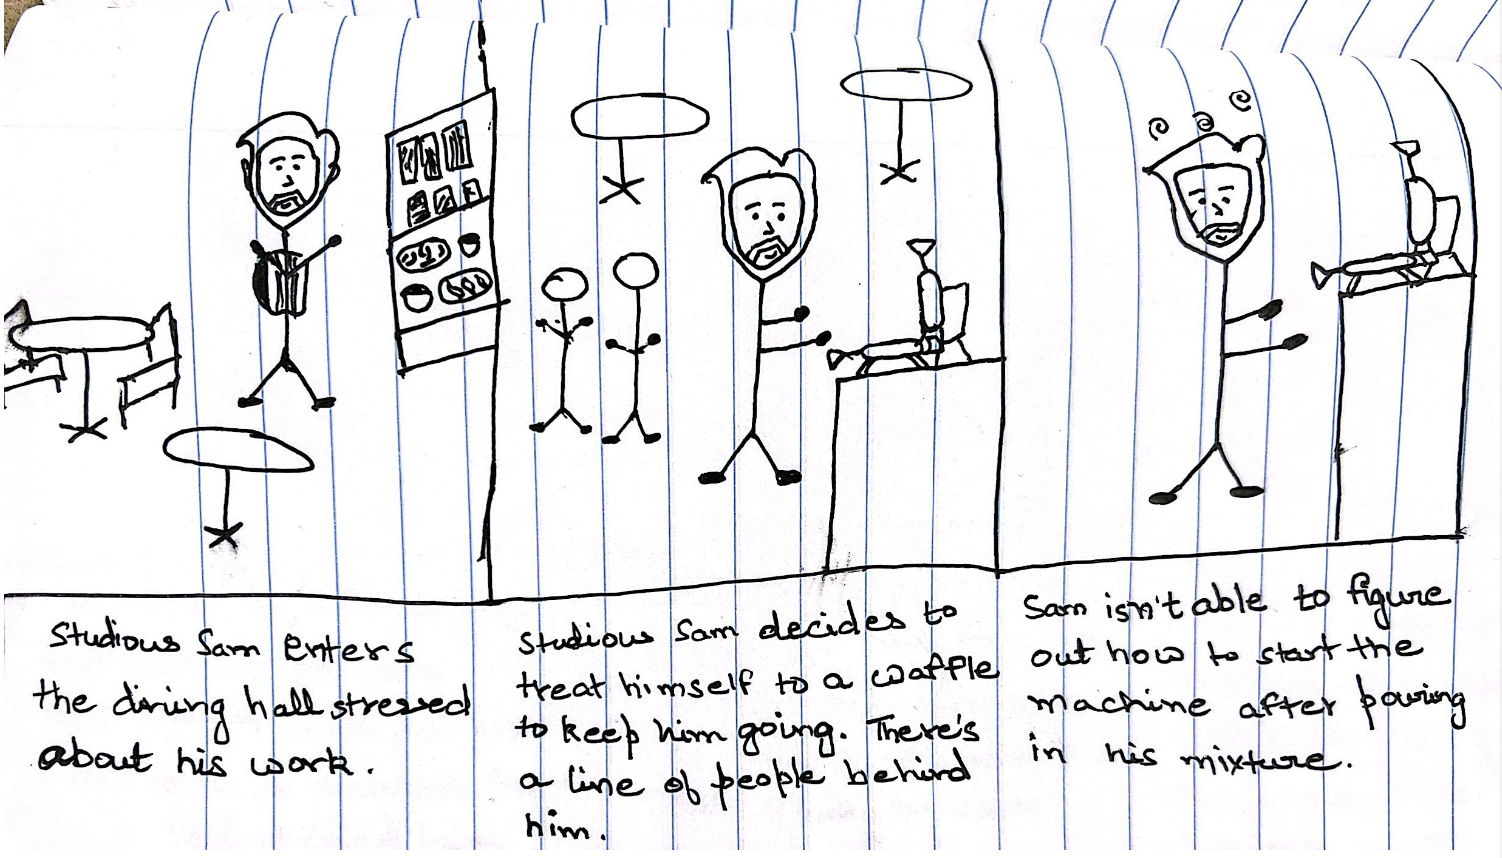 Studious Sam enters
the dining hall stressed
about his work.
Studious Sam decides to
treat himself to a waffle
to keep him going. There's
a line of people behind
him.
Sam isn't able to figure
out how to start the
machine after pouring
in his mixture.